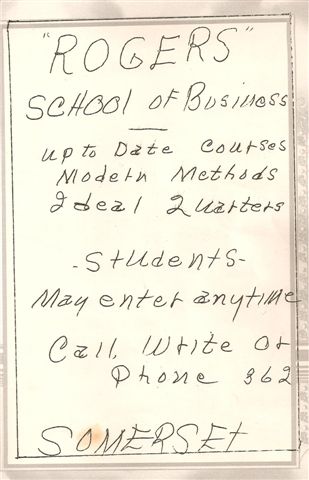 "ROGERS"
SCHOOL OF Business
up to Date Courses
Modern Methods
Ideal Quarters
-Students-
May enter anytime
Call, Write or
Phone 362
SOMERSEt